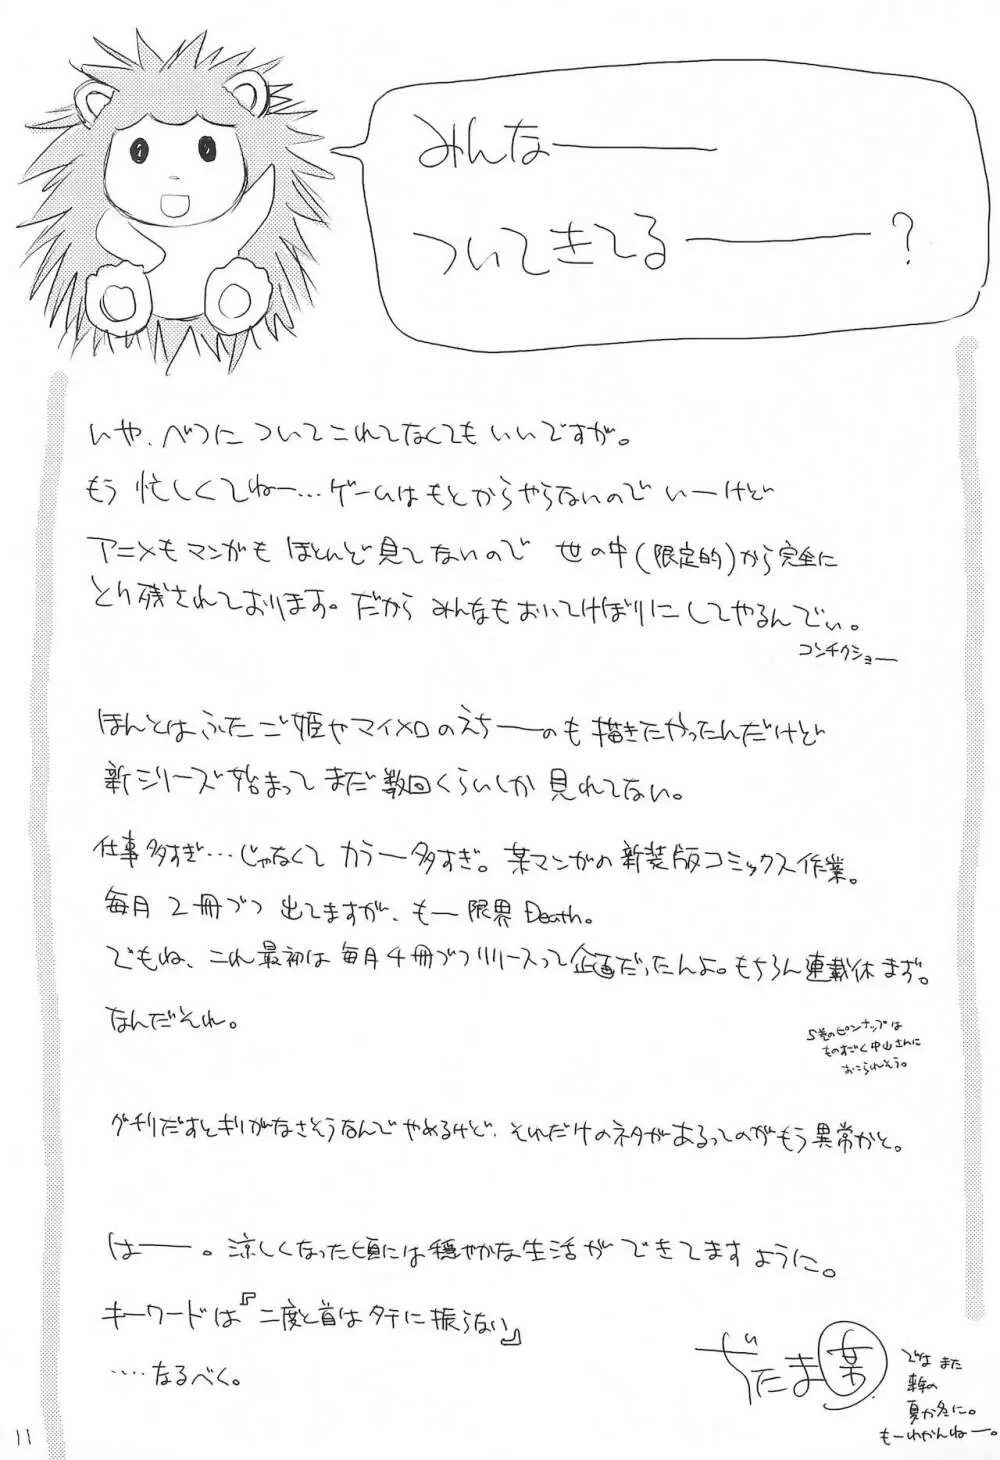 みんなーーー
ついてきてるーーー?
いや、べつについてこれてなくてもいいですが。
もう忙しくてねー…ゲームはもとからやらないのでいーけど
アニメもマンガもほとんど見てないので 世の中(限定的)から完全に
とり残されております。だからみんなもおいてけぼりにしてやるんでぃ。
コンチクショー
ほんとはふたご姫やマイメロのえちーのも描きたやったんだけど
新シリーズ始まってまだ数回くらいしか見れてない。
仕事多すぎ…じゃなくてカラー多すぎ。某マンガの新装版コミックス作業。
毎月2冊づつ出てますが、もー限界Death。
でもね、これ最初は毎月4冊づつリリースって企画だったんよ。もちろん連載休まず。
なんだそれ。
5巻のピンナップは
ものすごく中山さんに
おこられそう。
グチりだすとキリがなさそうなんでやめるけど、それだけのネタがあるってのがもう異常かと。
はーー。涼しくなった頃には穏やかな生活ができてますように。
キーワードは『二度と首はタテに振らない』
‥‥なるべく。
ぢたま某
ではまた
来年の
夏か冬に。
もーわかんねー。
11